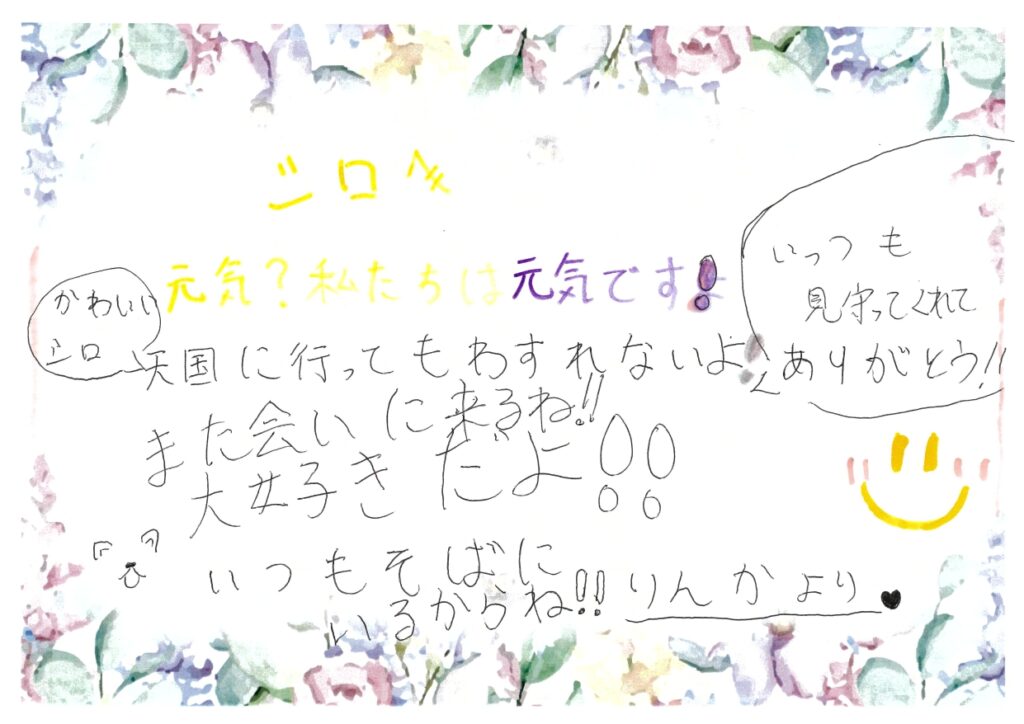 シロへ
元気?私たちは元気です!
かわいい
シロ
天国に行ってもわすれないよ!
また会いに来るね!!
大好きだよ!!
いっつも
見守ってくれて
ありがとう!!
いつもそばに
いるからね!!
りんかより♥